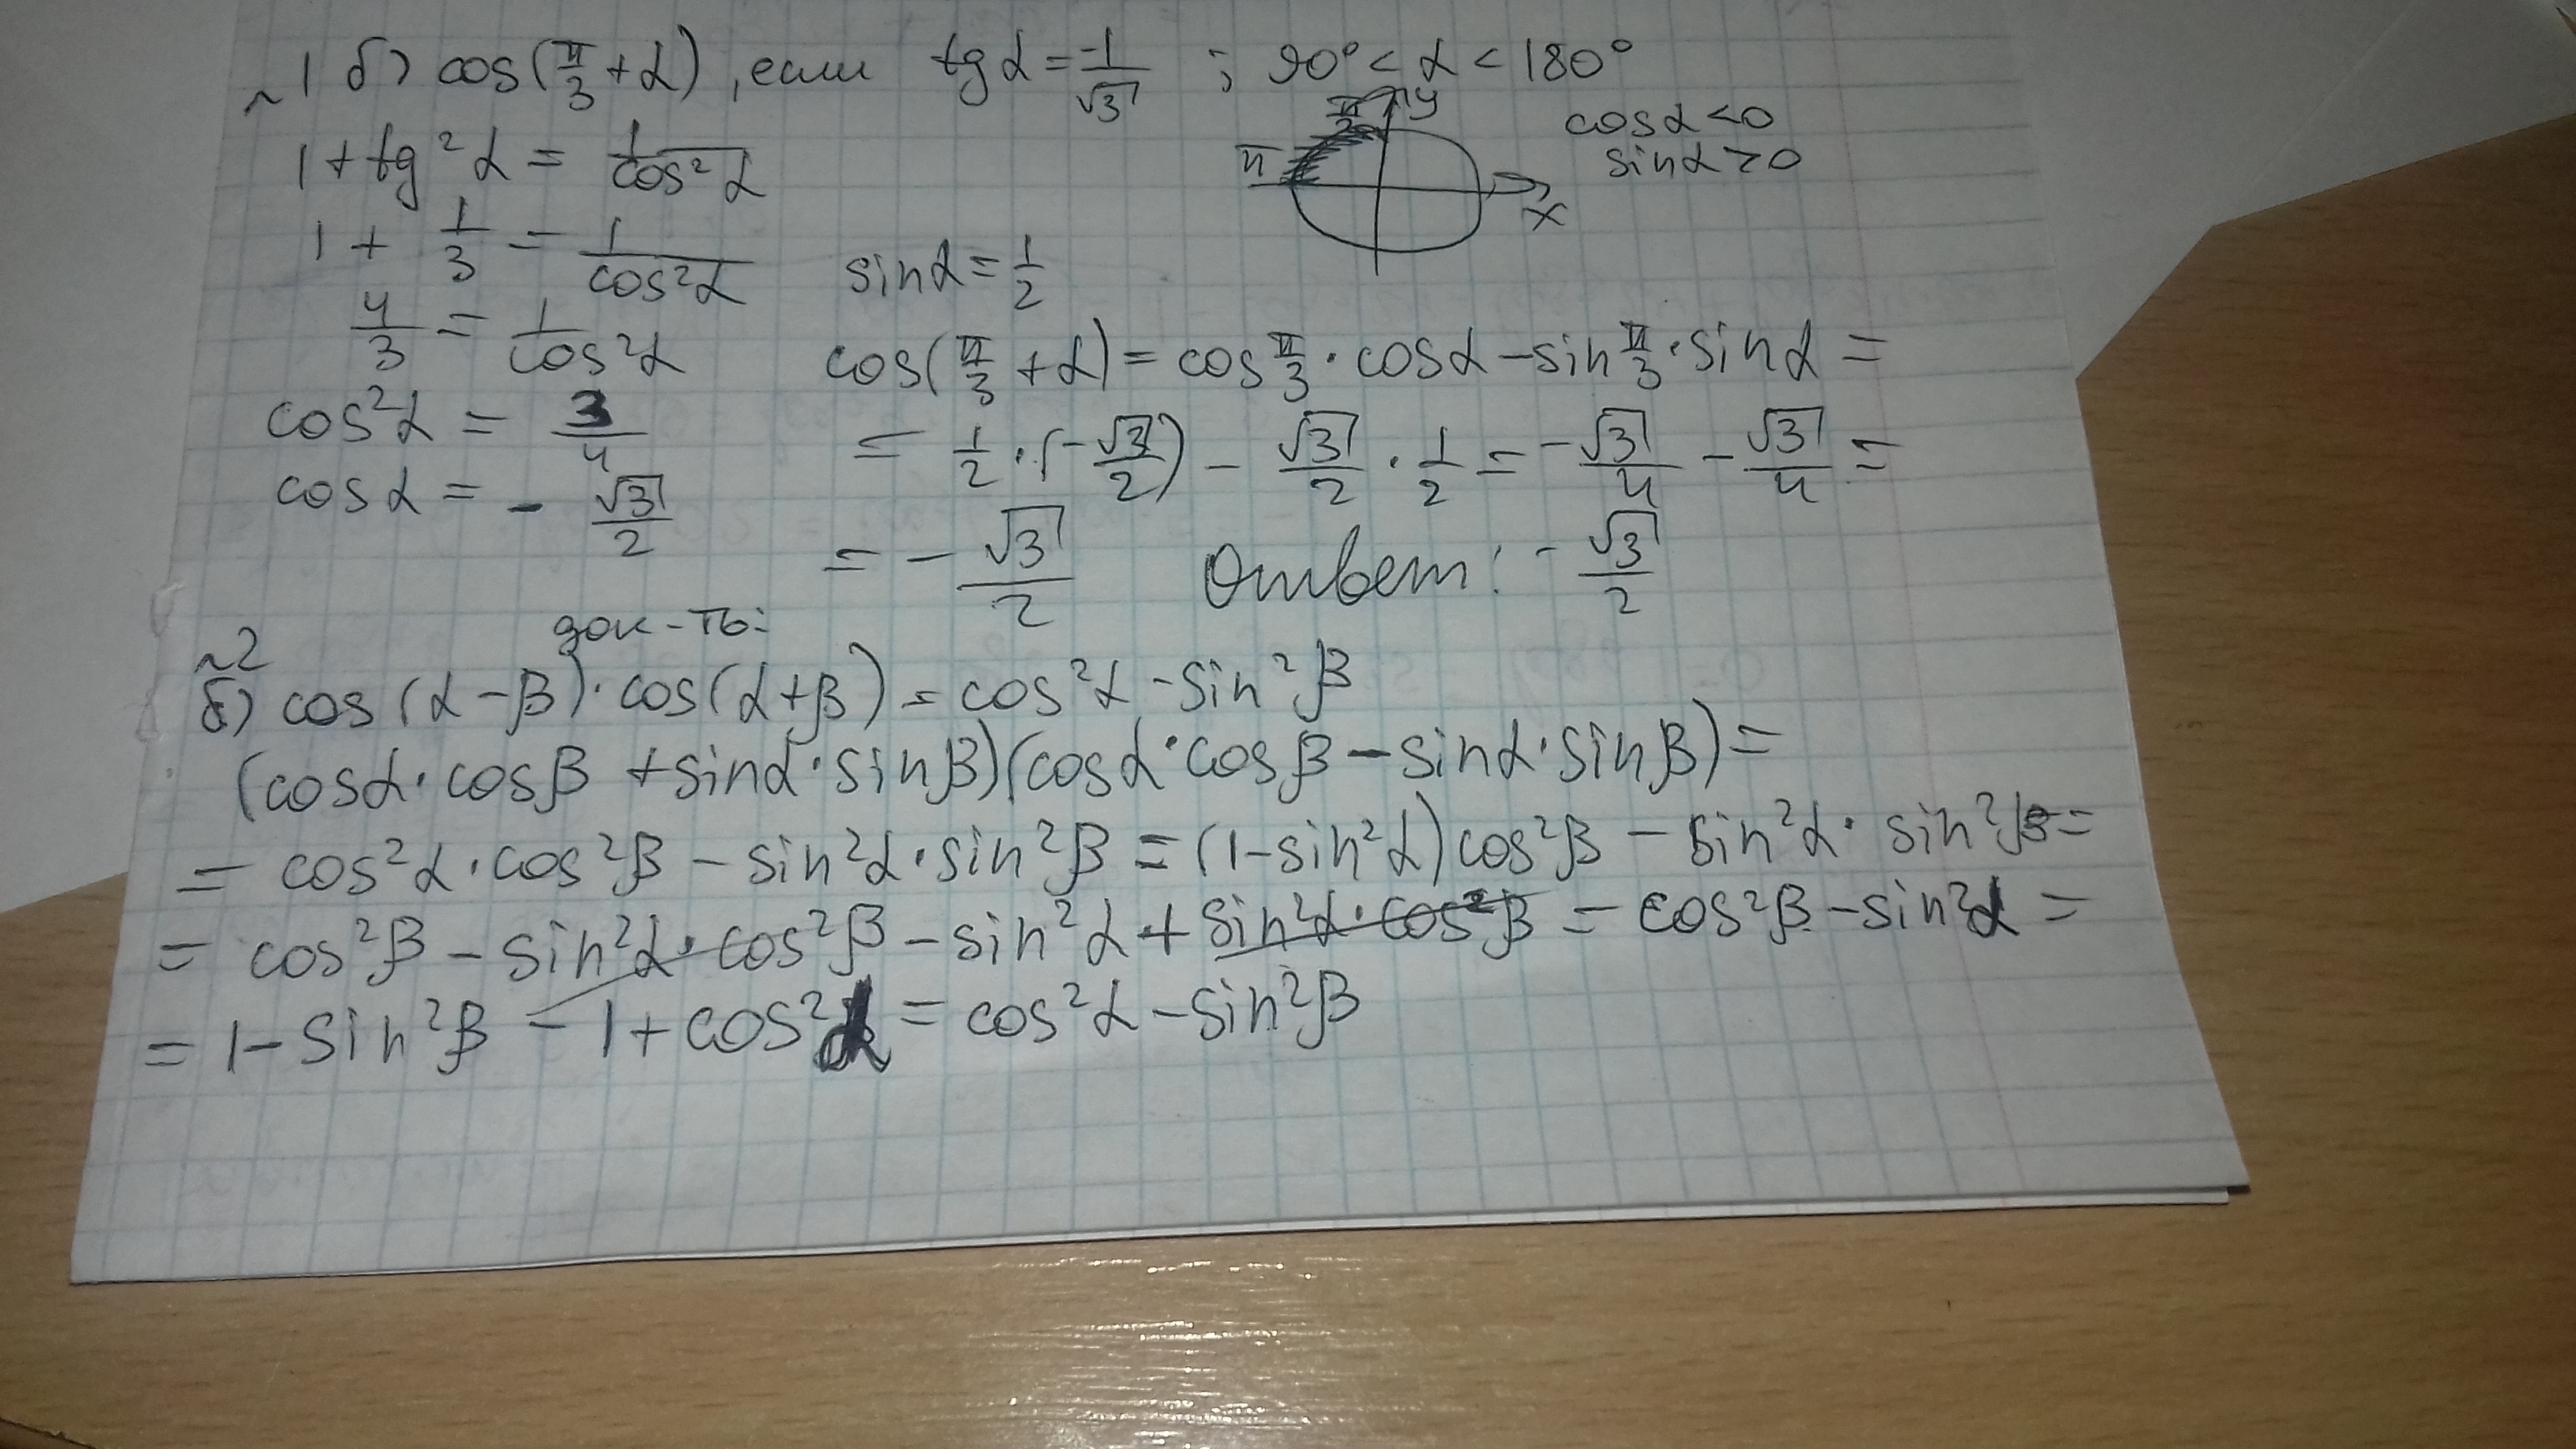 ~1 б) cos(π/3 + α), если tg α = -1/√3 ; 90° < α < 180°
1 + tg²α = 1/cos²α
π/2 y
π
x
cos α < 0
sin α > 0
1 + 1/3 = 1/cos²α
4/3 = 1/cos²α
cos²α = 3/4
cos α = - √3/2
sin α = 1/2
cos(π/3 + α) = cos π/3 · cos α - sin π/3 · sin α =
= 1/2 · (-√3/2) - √3/2 · 1/2 = -√3/4 - √3/4 =
= - √3/2 Ответ: - √3/2
~2 док-ть:
б) cos(α - β) · cos(α + β) = cos²α - sin²β
(cos α · cos β + sin α · sin β)(cos α · cos β - sin α · sin β) =
= cos²α · cos²β - sin²α · sin²β = (1 - sin²α) cos²β - sin²α · sin²β =
= cos²β - sin²α · cos²β - sin²α + sin²α · cos²β = cos²β - sin²α =
= 1 - sin²β - 1 + cos²α = cos²α - sin²β